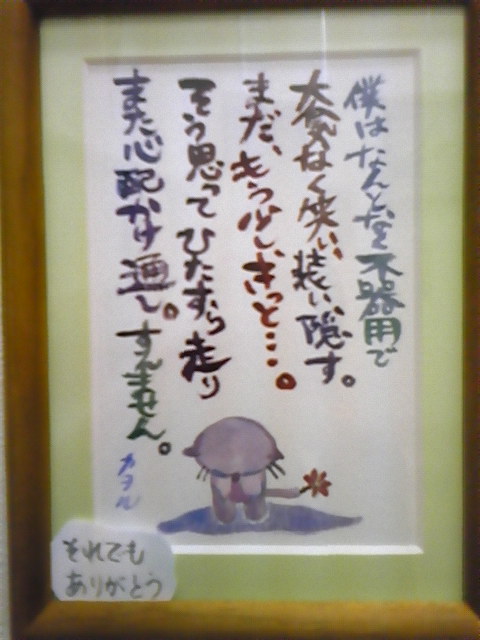 僕はなんとなく不器用で
大気なく笑い、装い、隠す。
まだ、もう少し、きっと…。
そう思ってひたすら走り
また心配かけ通し。すんません。
カヲル
それでも
ありがとう